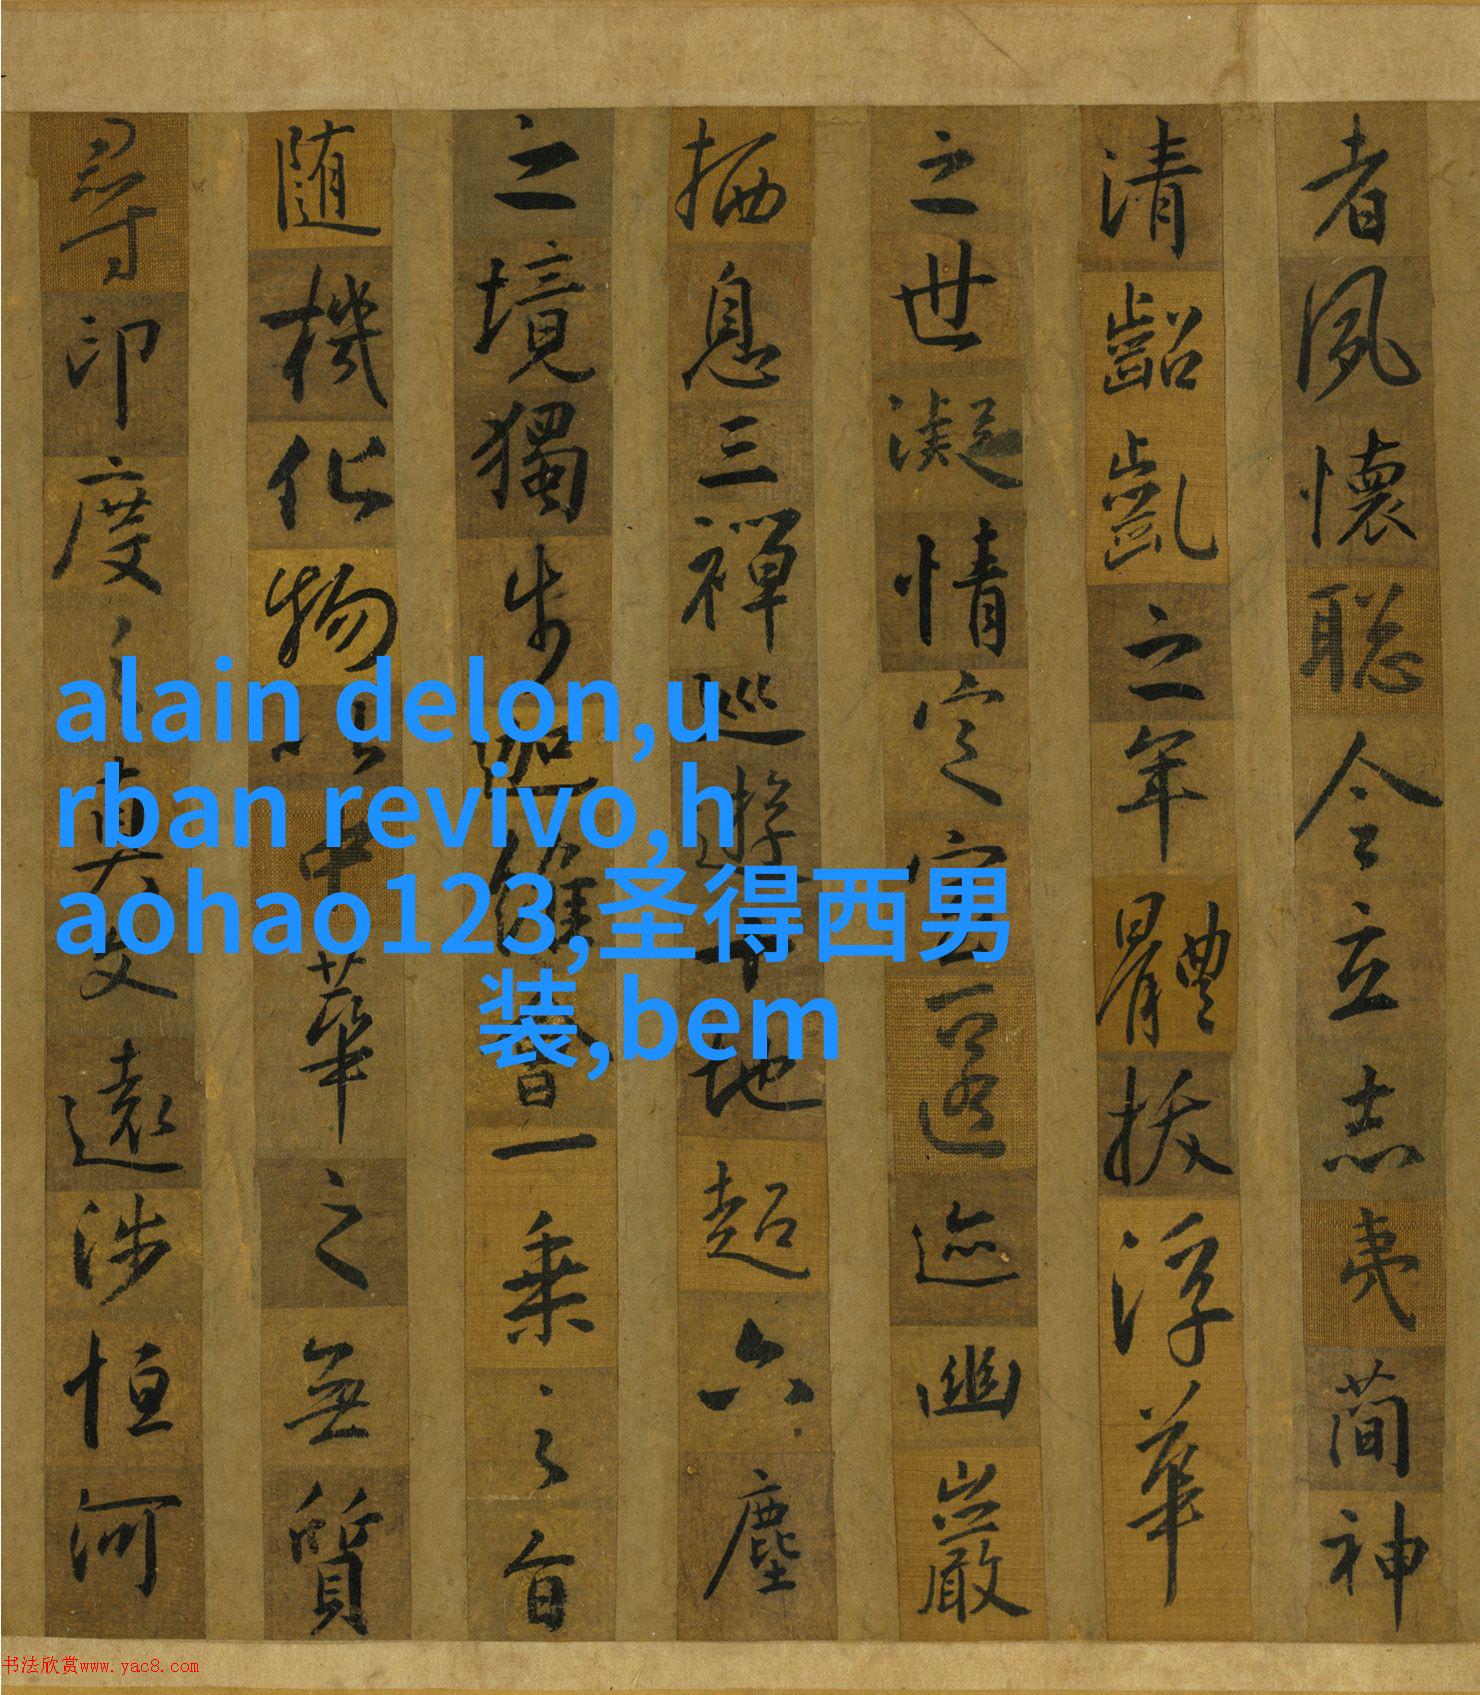 者夙懷聰令立志夷簡神
清齠齔之年體拔浮華
之世凝情定室匿迹幽巖
栖息三禪巡遊十地超六塵
之境獨步迦維會一乘之旨
隨機化物以中華之無質
尋印度之真文遠涉恒河
alain delon,u
rban revivo,h
aohao123,圣得西男
装,bem
书法欣赏www.yac8.com